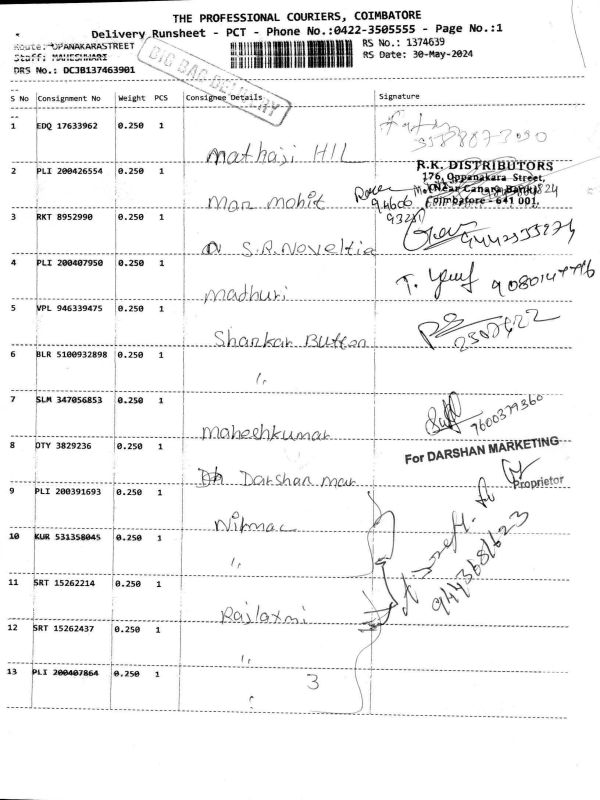 THE PROFESSIONAL COURIERS, COIMBATORE
Delivery Runsheet - PCT - Phone No.:0422-3505555 - Page No.:1
Route: OPANAKARASTREET
RS No.: 1374639
Staff: MAHESHWARI
RS Date: 30-May-2024
DRS No.: DCJB137463901
BIG BAG DELIVERY
S No Consignment No Weight PCS Consignee Details Signature
1 EDQ 17633962 0.250 1 Mathaji HIL
2 PLI 200426554 0.250 1 Man mohit
R.K. DISTRIBUTORS
176, Oppanakara Street,
(Near Canara Bank)
Coimbatore - 641 001.
3 RKT 8952990 0.250 1 S.R. Noveltie
4 PLI 200407950 0.250 1 Madhuri
5 VPL 946339475 0.250 1 Shankar Button
6 BLR 5100932898 0.250 1 "
7 SLM 347056853 0.250 1 Maheshkumar 7600379360
For DARSHAN MARKETING
Proprietor
8 DTY 3829236 0.250 1 Darshan mar
9 PLI 200391693 0.250 1 Nirmac
10 KUR 531358045 0.250 1 "
9443681623
11 SRT 15262214 0.250 1 Rajlaxmi
12 SRT 15262437 0.250 1 "
13 PLI 200407864 0.250 1 3